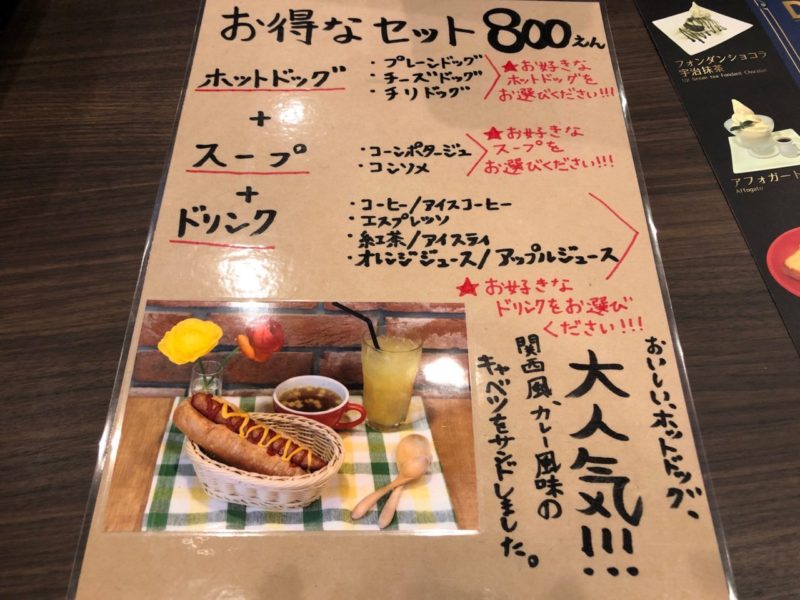 お得なセット 800えん
ホットドッグ
・プレーンドッグ
・チーズドッグ
・チリドッグ
★お好きな
ホットドッグを
お選びください!!!
+
スープ
・コーンポタージュ
・コンソメ
★お好きな
スープを
お選びください!!!
+
ドリンク
・コーヒー/アイスコーヒー
・エスプレッソ
・紅茶/アイスティ
・オレンジジュース/アップルジュース
★お好きな
ドリンクをお選び
ください!!!
おいしいホットドッグ、
大人気!!!
関西風、カレー風味の
キャベツをサンドしました。
フォンダンショコラ
宇治抹茶
Uji Green tea Fondant Chocolat
アフォガート
Affogato